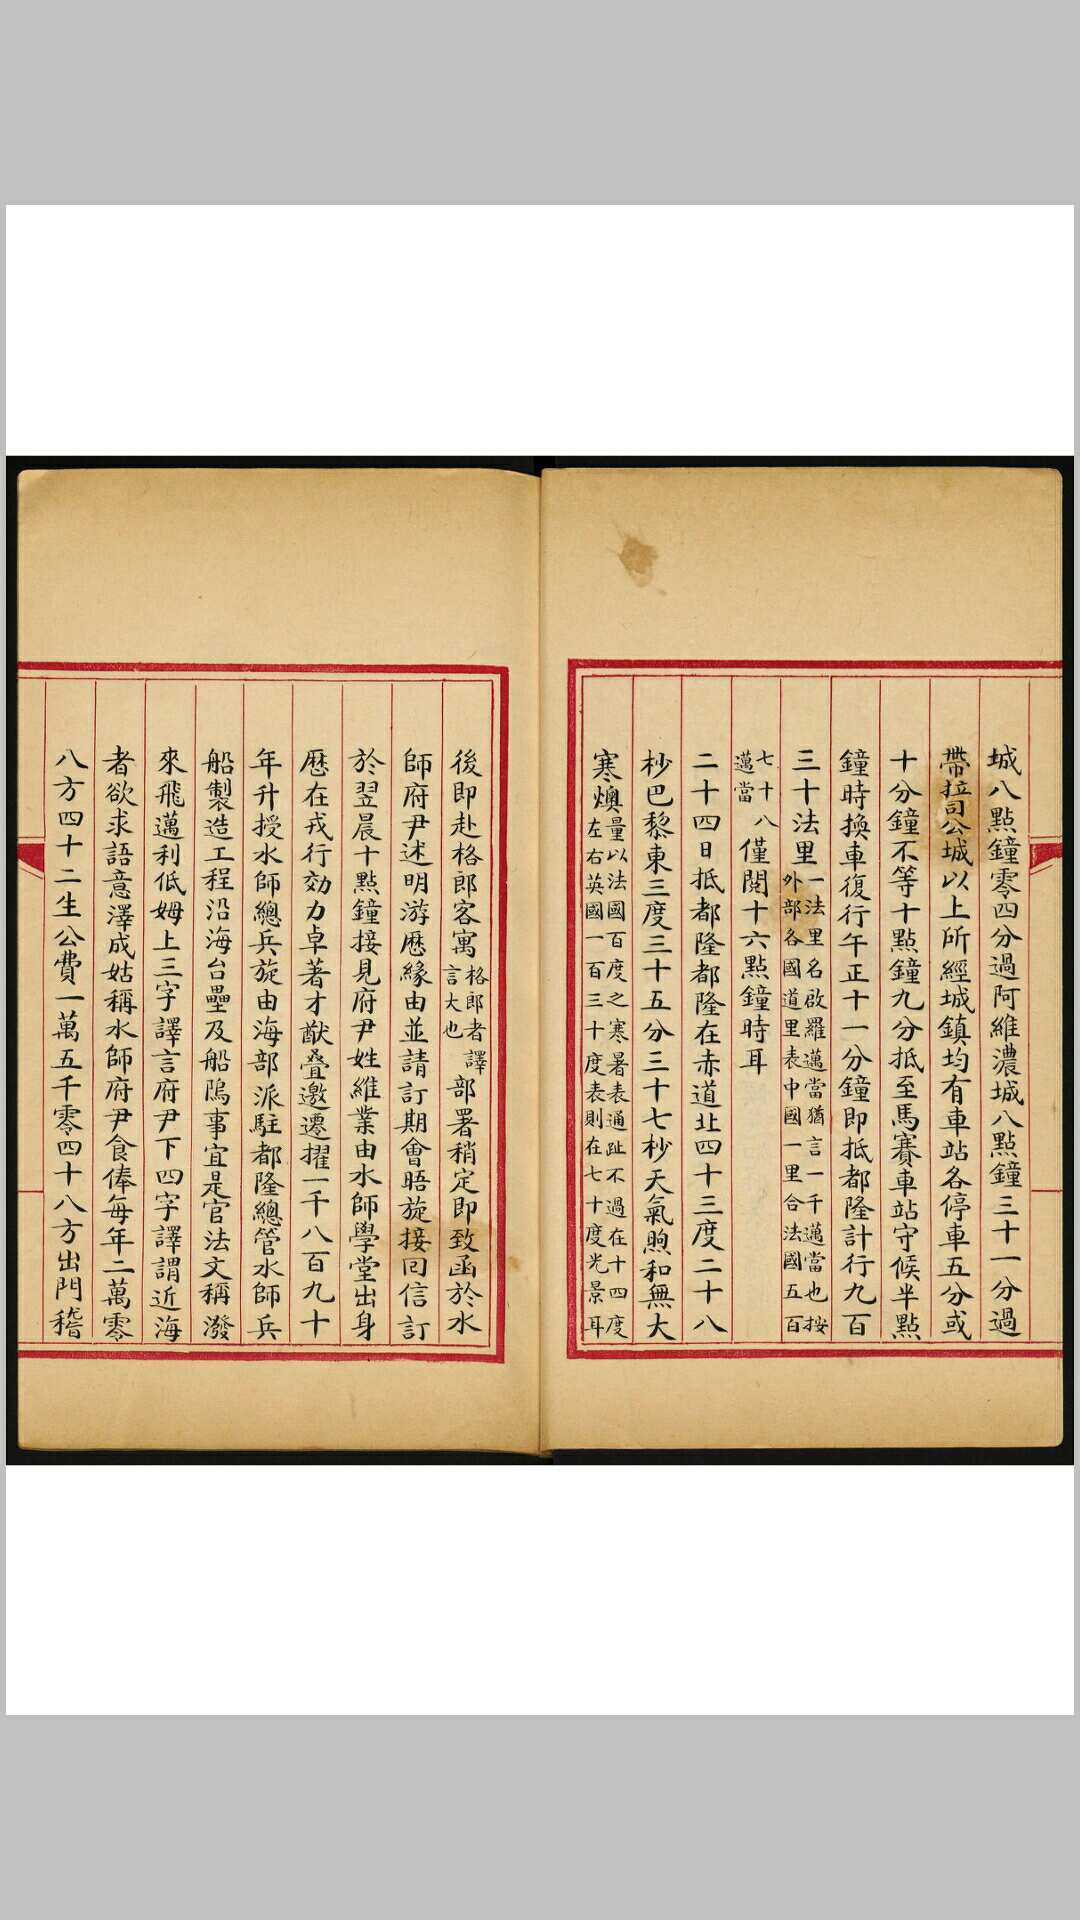 城八點鐘零四分過阿維濃城八點鐘三十一分過
帶拉司公城以上所經城鎮均有車站各停車五分或
十分鐘不等十點鐘九分抵至馬賽車站守候半點
鐘時換車復行午正十一分鐘即抵都隆計行九百
三十法里一法里名啟羅邁當猶言一千邁當也按
外部各國道里表中國一里合法國五百
七十八
邁當
僅閱十六點鐘時耳
二十四日抵都隆都隆在赤道北四十三度二十八
杪巴黎東三度三十五分三十七杪天氣煦和無大
寒燠量以法國百度之寒暑表通趾不過在十四度
左右英國一百三十度表則在七十度光景耳
後即赴格郎客寓格郎者譯
言大也
部署稍定即致函於水
師府尹述明游歷緣由並請訂期會晤旋接回信訂
於翌晨十點鐘接見府尹姓維業由水師學堂出身
歷在戎行効力卓著才猷叠邀遷擢一千八百九十
年升授水師總兵旋由海部派駐都隆總管水師兵
船製造工程沿海台壘及船塢事宜是官法文稱潑
來飛邁利低姆上三字譯言府尹下四字譯謂近海
者欲求語意澤成姑稱水師府尹食俸每年二萬零
八方四十二生公費一萬五千零四十八方出門稽